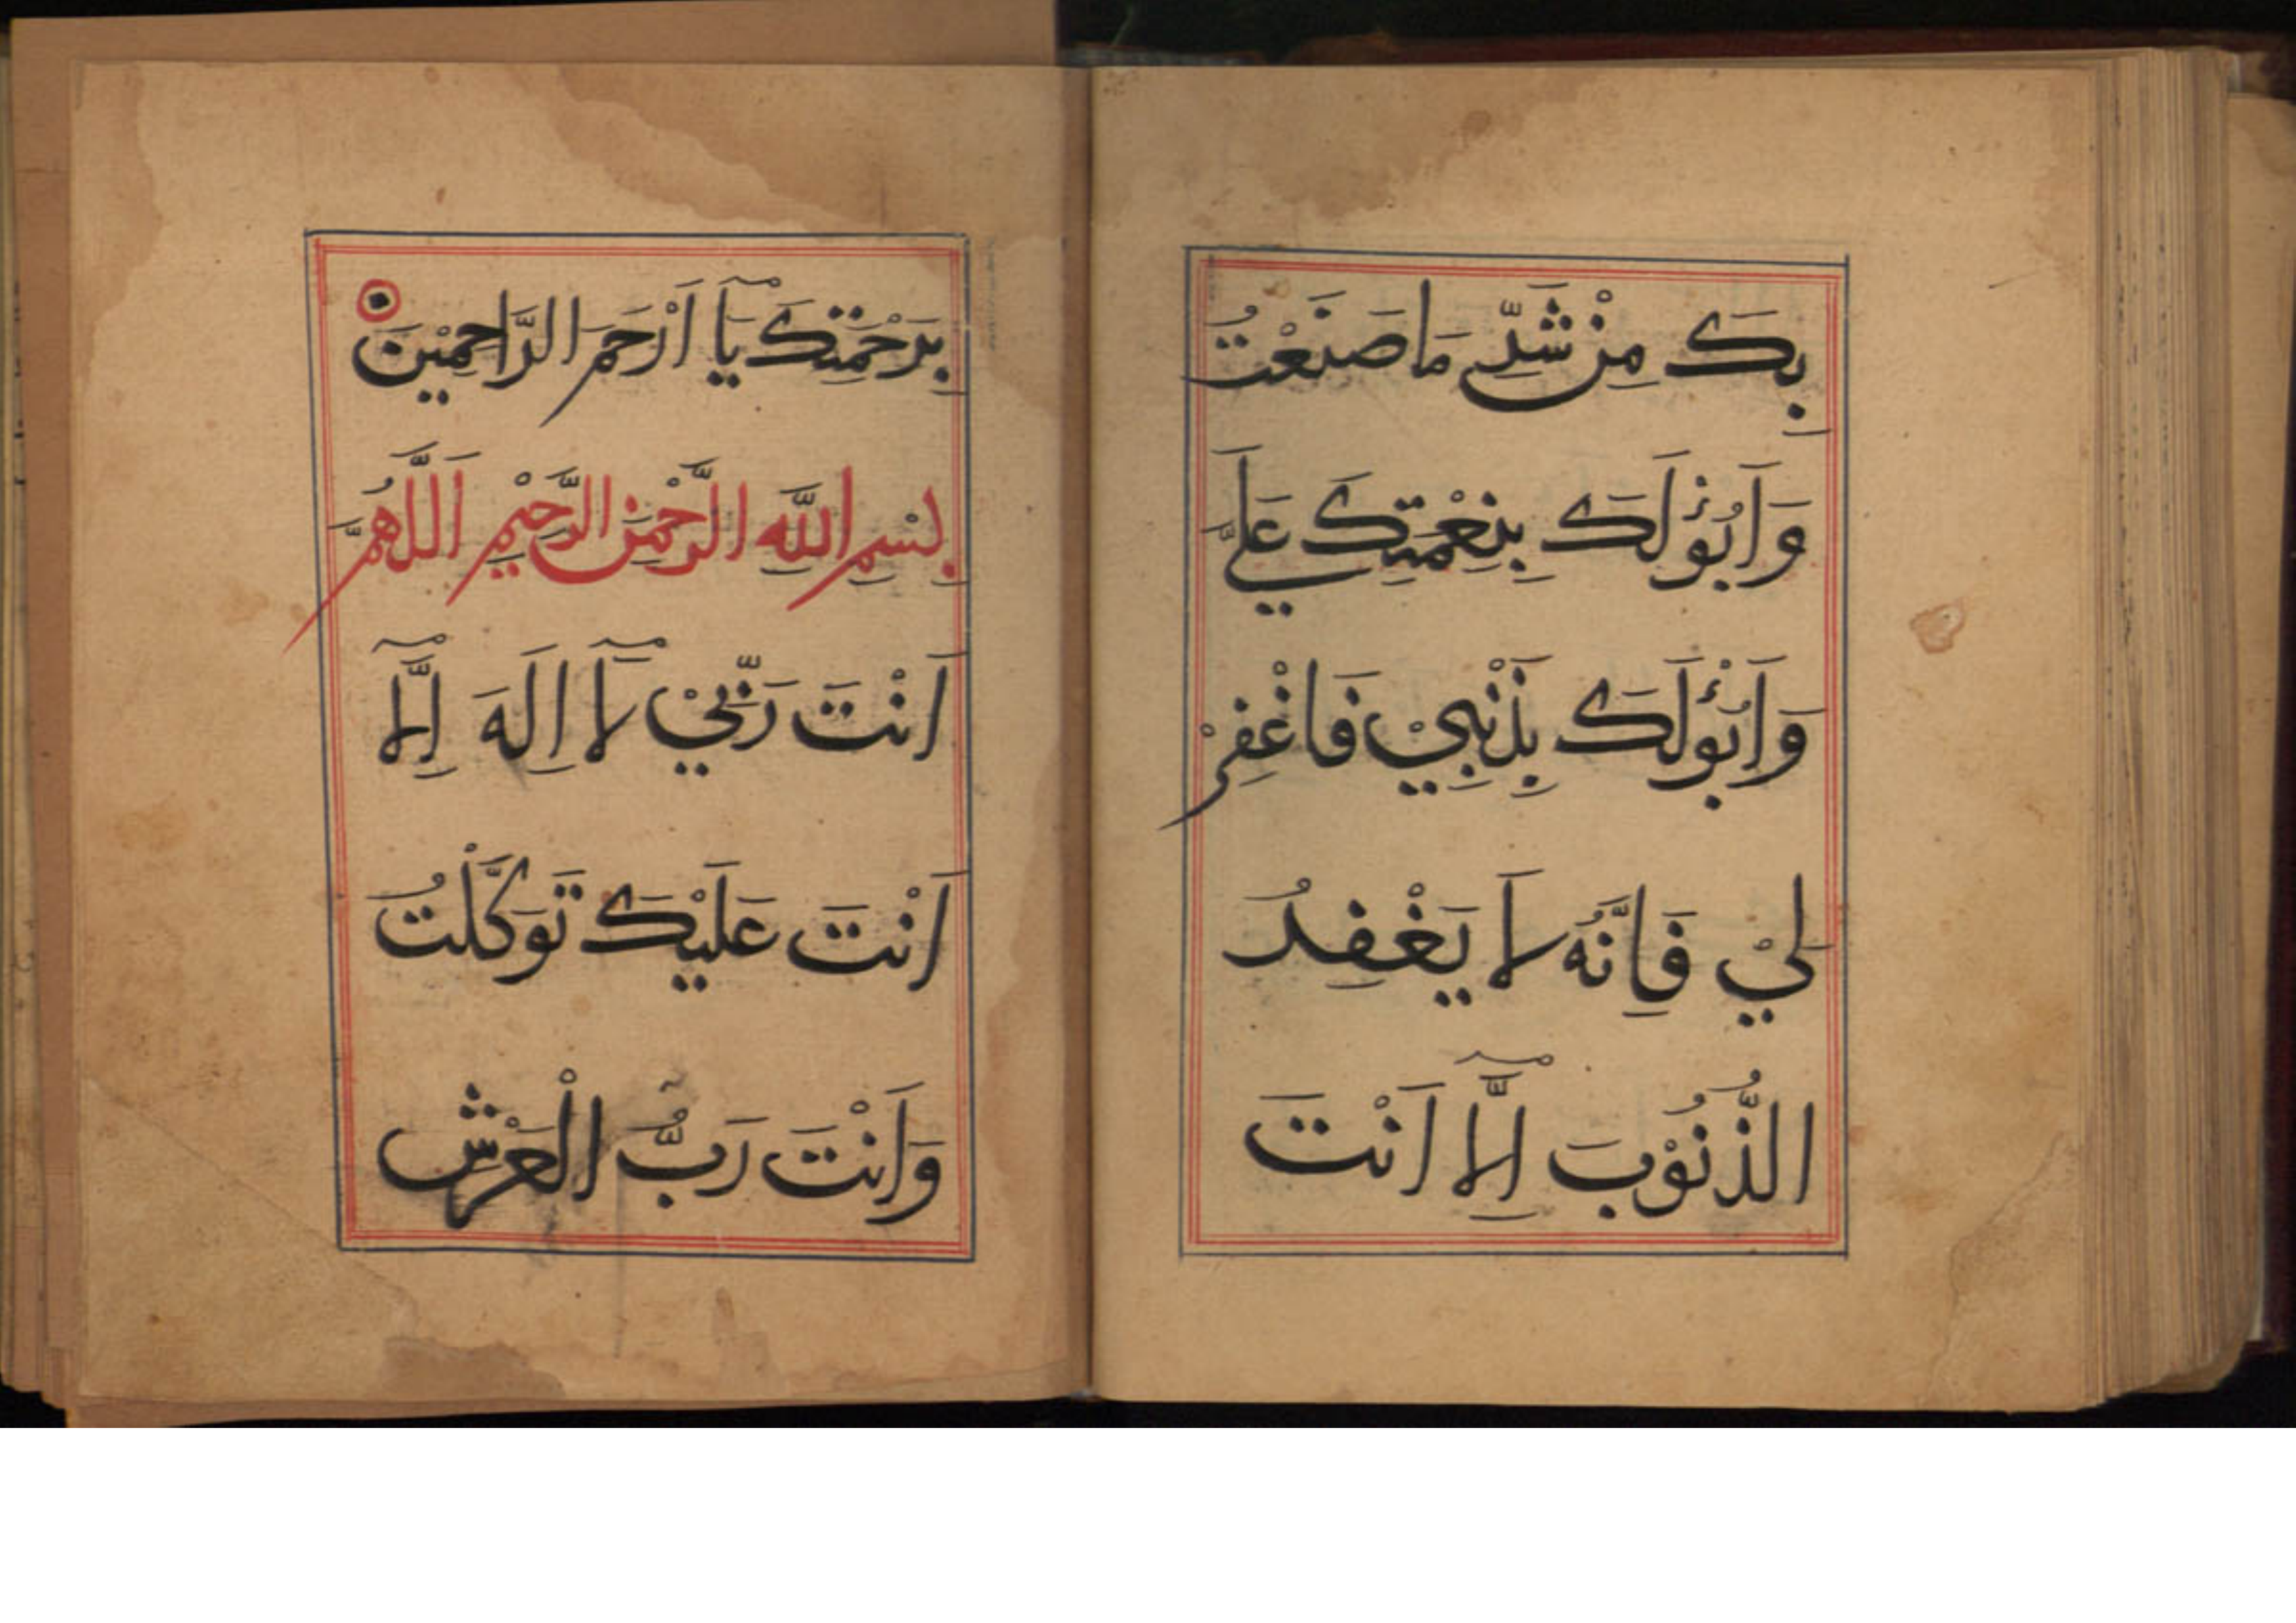 بِكَ مِنْ شَدِّ مَا صَنَعْتُ
وَاَبُوْءُ لَكَ بِنِعْمَتِكَ عَلَيَّ
وَاَبُوْءُ لَكَ بِذَنْبِيْ فَاغْفِرْ
لِيْ فَاِنَّهُ لَا يَغْفِرُ
الذُّنُوْبَ اِلَّآ اَنْتَ
بِرَحْمَتِكَ يَآ اَرْحَمَ الرَّاحِمِيْنَ
بِسْمِ اللَّهِ الرَّحْمَنِ الرَّحِيْمِ اَللَّهُمَّ
اَنْتَ رَبِّيْ لَآ اِلَهَ اِلَّآ
اَنْتَ عَلَيْكَ تَوَكَّلْتُ
وَاَنْتَ رَبُّ الْعَرْشِ